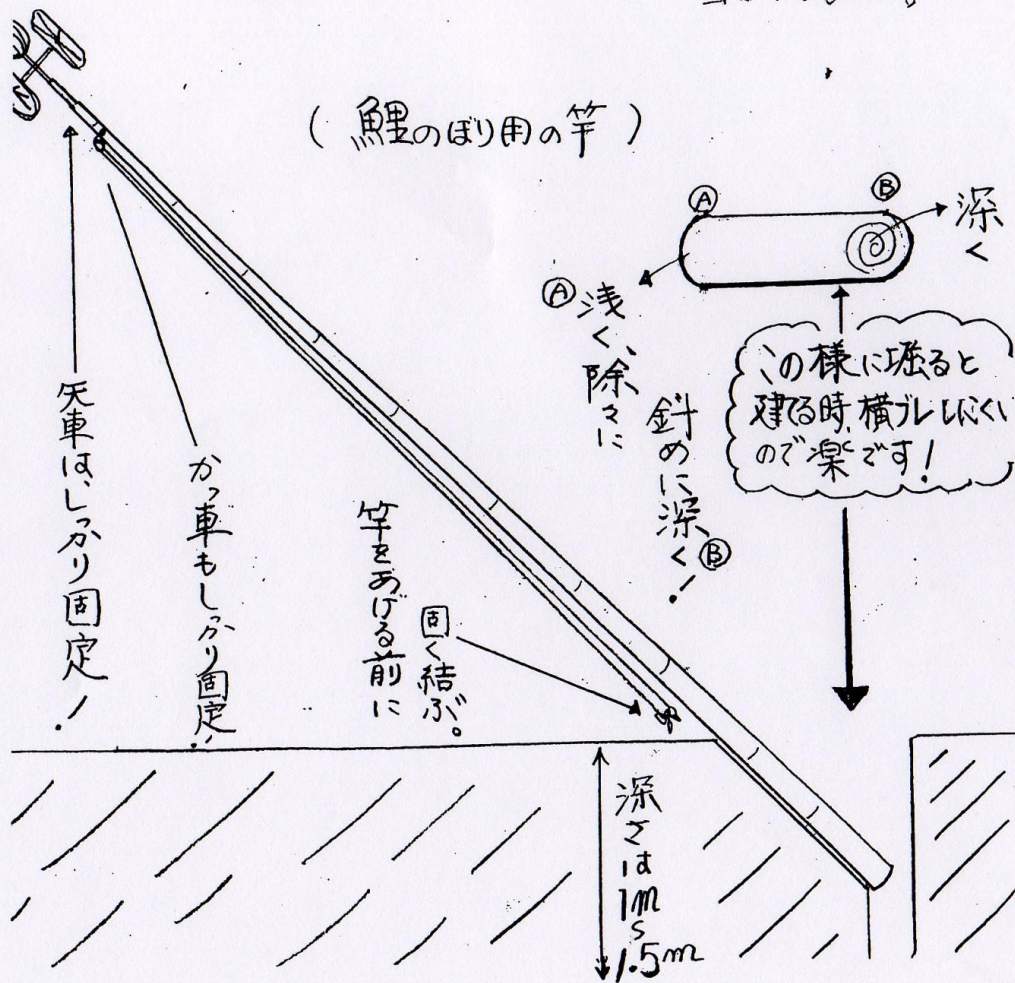 (鯉のぼり用の竿)
Ⓐ
Ⓑ
深く
Ⓐ浅く、除々に
斜めに深くⒷ!
この様に堀ると
建てる時、横ブレしにくい
ので楽です!
矢車は、しっかり固定!
かっ車もしっかり固定!
竿をあげる前に
固く結ぶ。
深さは1m〜1.5m